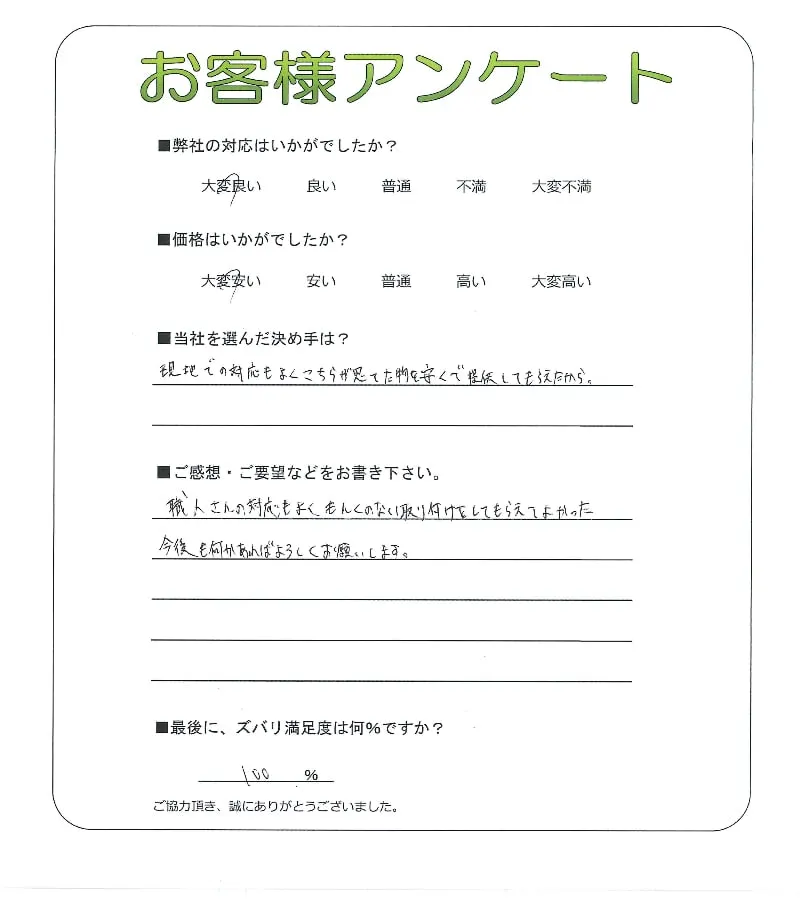 お客様アンケート
■弊社の対応はいかがでしたか？
大変良い 良い 普通 不満 大変不満
■価格はいかがでしたか？
大変安い 安い 普通 高い 大変高い
■当社を選んだ決め手は？
現地での対応もよくこちらが思てた物を安くで提供してもらえたから。
■ご感想・ご要望などをお書き下さい。
職人さんの対応もよくもんくのない取り付けをしてもらえてよかった
今後も何かあればよろしくお願いします。
■最後に、ズバリ満足度は何%ですか？
100 %
ご協力頂き、誠にありがとうございました。